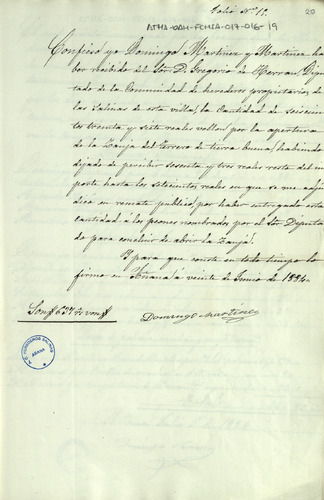 Folio Nº 12.
20
ATHA-DAH-FCHSA-017-016-19
Confieso yo Domingo Martinez y Martinez ha
ber recibido del Sor. D. Gregorio de Herran, Dipu
tado de la Comunidad de herederos propietarios de
las Salinas de esta villa, la Cantidad de seiscien
tos treinta y siete reales vellon, por la apertura
de la Zanja del terrero de tierra buena, habiendo
dejado de percibir sesenta y tres reales resta del im
porte hasta los setecientos reales en que se me adju
dico en remate publico, por haber entregado esta
cantidad a los peones nombrados por el Sor Diputa
do para concluir de abrir la Zanja.
Y para que conste en todo tiempo lo
firmo en Anana, a veinte de Junio de 1884.
Son 637 rs von
Domingo Martinez
HEREDEROS SALINAS
AÑANA